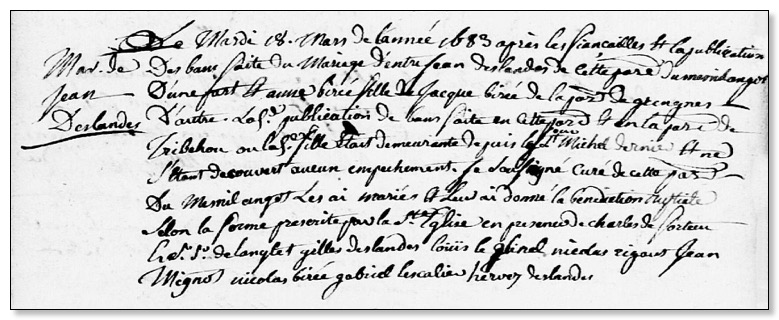 Le Mardi 18. Mars de l'année 1683 après les fiancailles et la publication
Mar. de
Jean
Deslandes
Des bans faite du Mariage d'entre Jean deslandes de cette par. du mesnilangot
D'une part et anne birée fille de Jacque birée de la par.
D'autre. La publication de bans faite en cette par. et en la par. de
Tribehou ou la fille etait demeurante depuis la St Michel derniere et ne
s'etant decouvert aucun empechement. Je soussigné curé de cette par.
Du Mesnil angot Les ai mariés et leur ai donné la benediction
selon la forme prescrite par la Ste Eglise en presence de charles de
de langlet gilles deslandes loüis le nicolas rigaut Jean
Mignot nicolas birée gabriel lescalier hervey deslandes